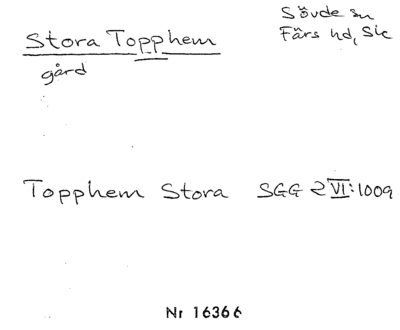 Stora Topphem
Sövde sn
Färs hd, Sk
gård
Topphem Stora SGG 2 VI:1009
Nr 16366